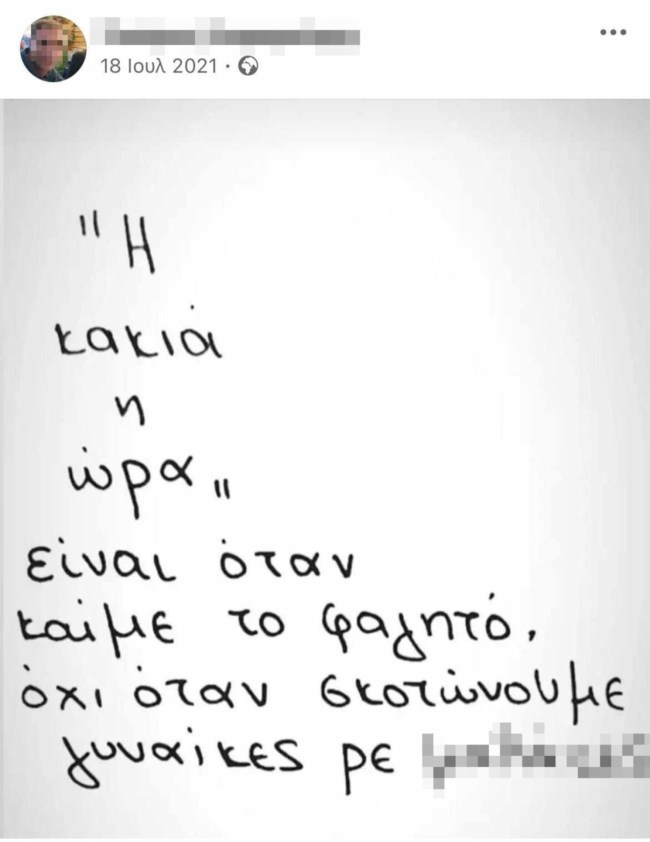 18 Ιουλ 2021 ·
"Η
κακιά
η
ώρα"
είναι όταν
καίμε το φαγητό,
όχι όταν σκοτώνουμε
γυναίκες ρε